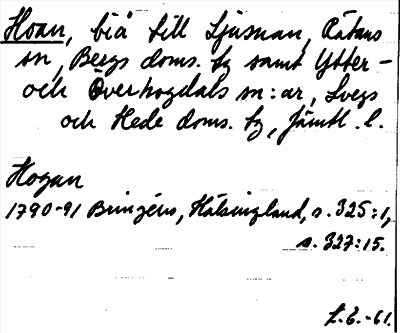 Hoan, biå till Ljusnan, Rätans
sn, Bergs doms. tg samt Ytter-
och Överhogdals sn:ar, Svegs
och Hede doms. tg, Jämtl. l.
Hogan
1790-91 Bringéus, Hälsingland, s. 325:1,
s. 327:15.
L.E.-61.